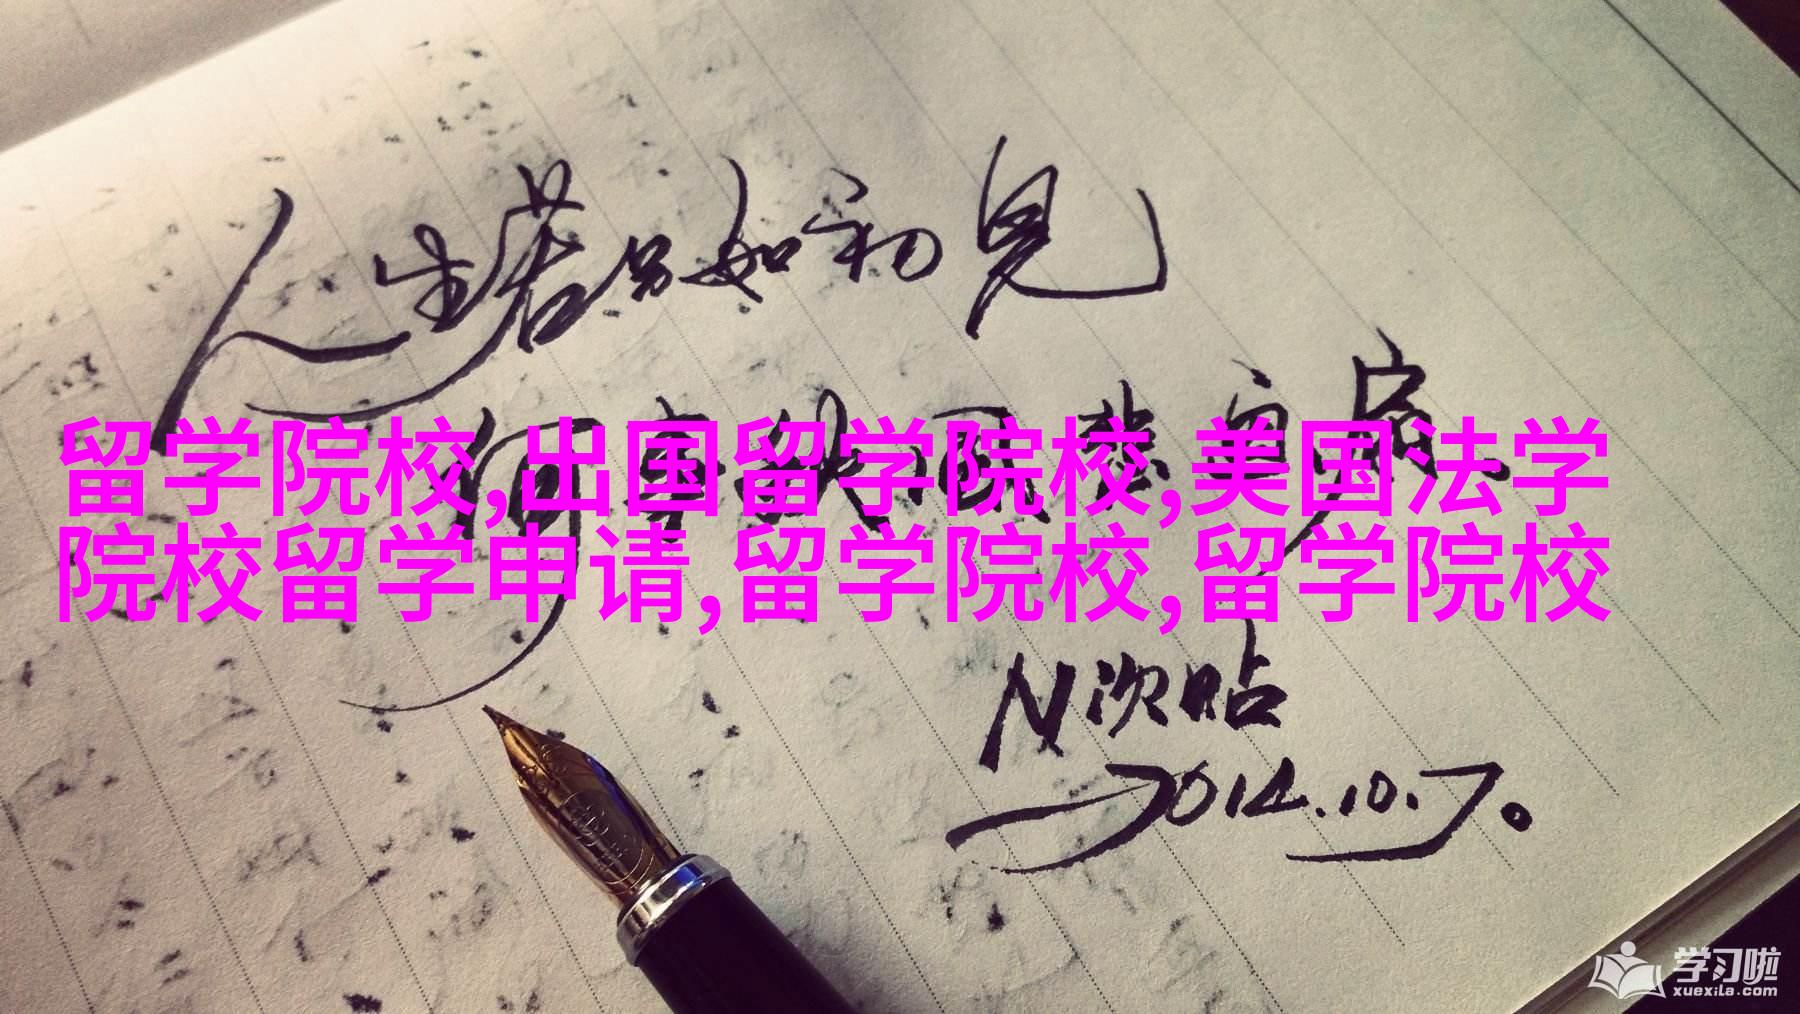 人生若只如初见
留学院校,出国留学院校,美国法学
院校留学申请,留学院校,留学院校
N次贴
2014.10.7。
学习啦
xuexila.com